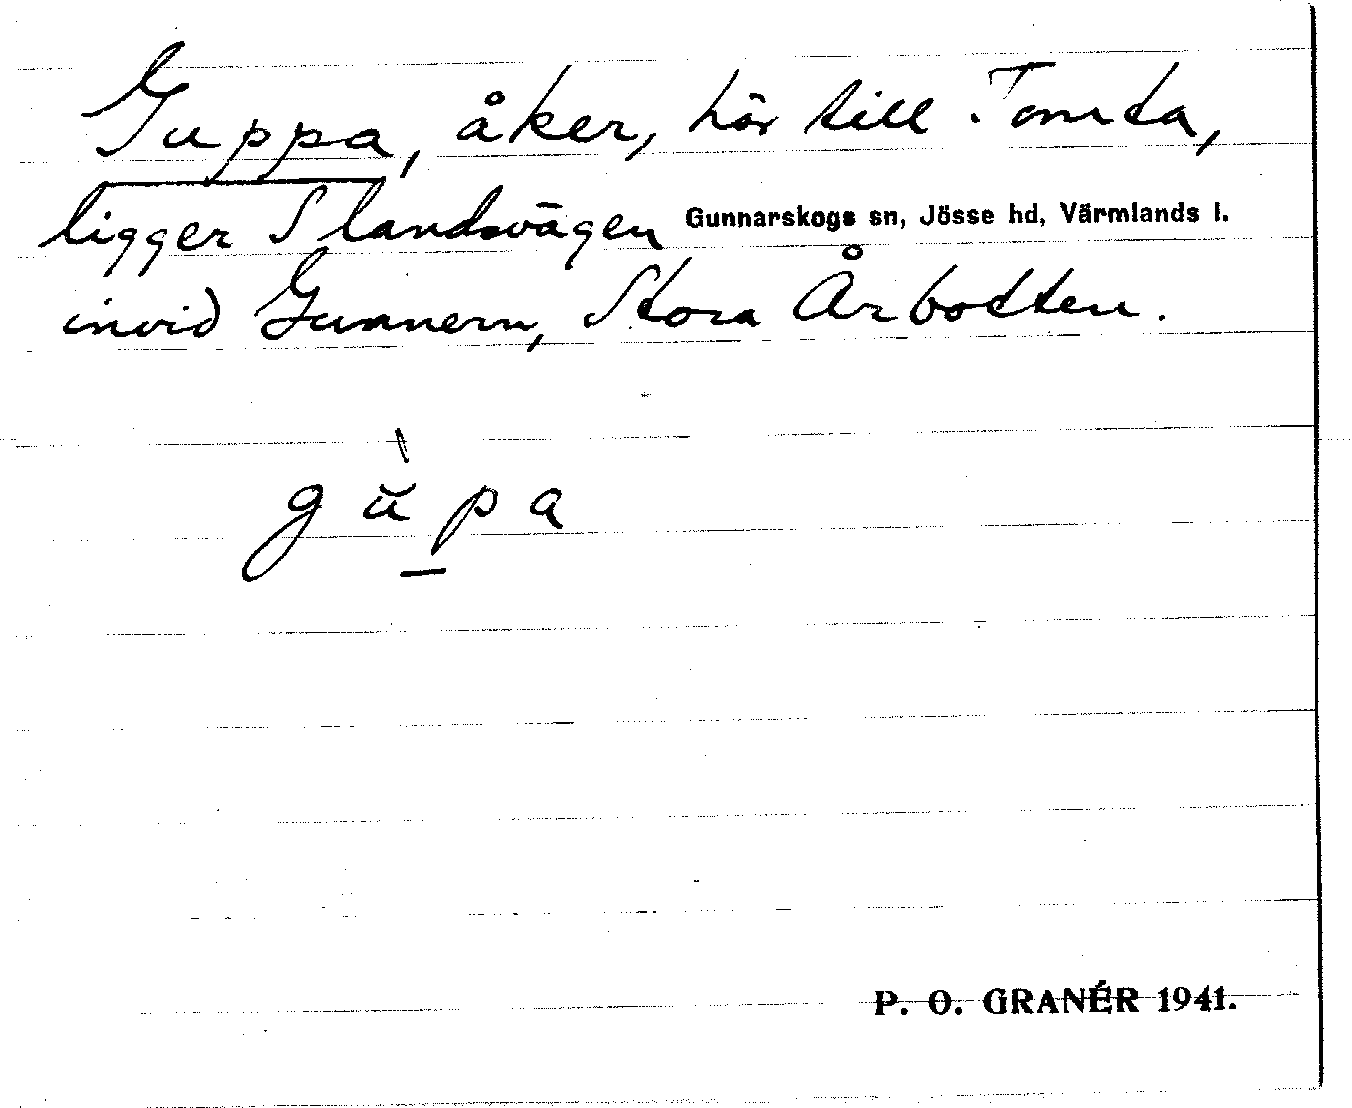 Guppa, åker, hör till Tomta,
ligger S landsvägen Gunnarskogs sn, Jösse hd, Värmlands l.
invid Gunnern, Stora Årbotten.
gŭ̀pa
P. O. GRANÉR 1941.